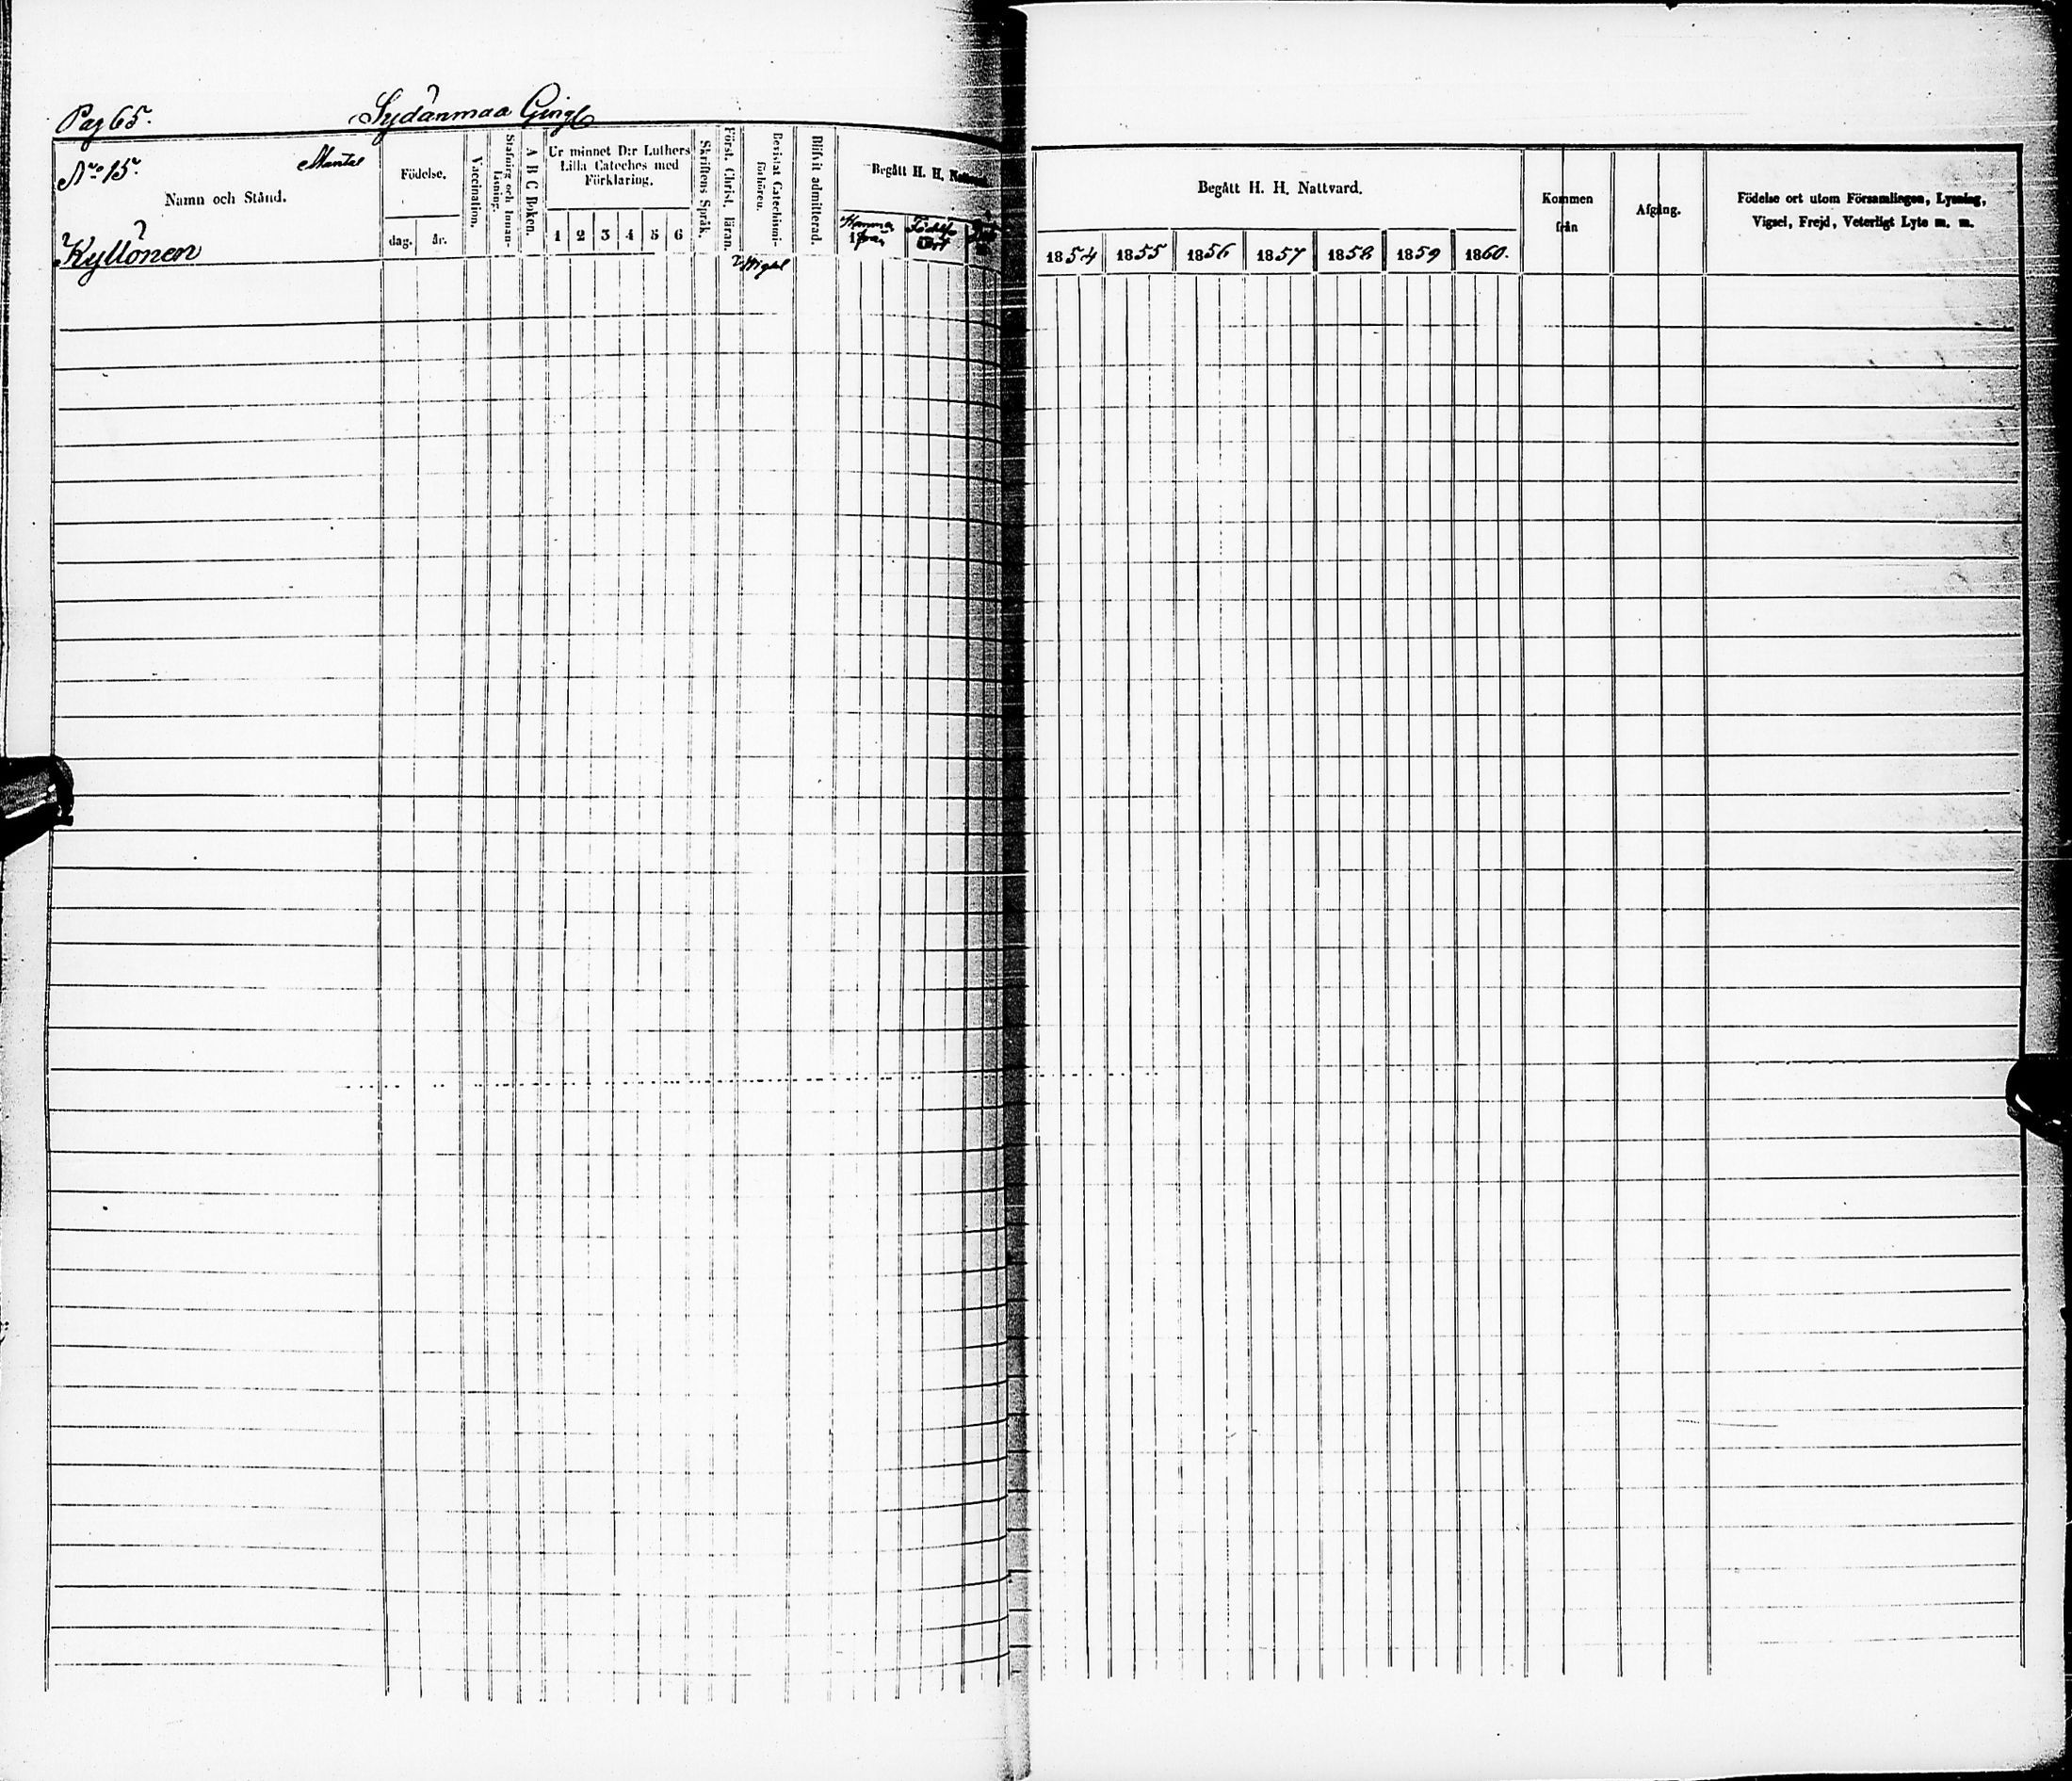 Pag 65.
Sydänmaa
No 15.
Mantal
Namn och Stånd.
Kyllönen
Födelse.
dag. år.
Vaccination.
Stafning och Innan-
läsning.
A B C Boken.
Ur minnet D:r Luthers
Lilla Cateches med
Förklaring.
1 2 3 4 5 6
Skriftens Språk.
Först. Christ. läran.
Bevistat Catechismi-
förhören.
Vigsel
Blifvit admitterad.
Begått H. H.
Födelse
Ort
Begått H. H. Nattvard.
1854 1855 1856 1857 1858 1859 1860.
Kommen
från
Afgång.
Födelse ort utom Församlingen, Lysning,
Vigsel, Frejd, Veterligt Lyte m. m.